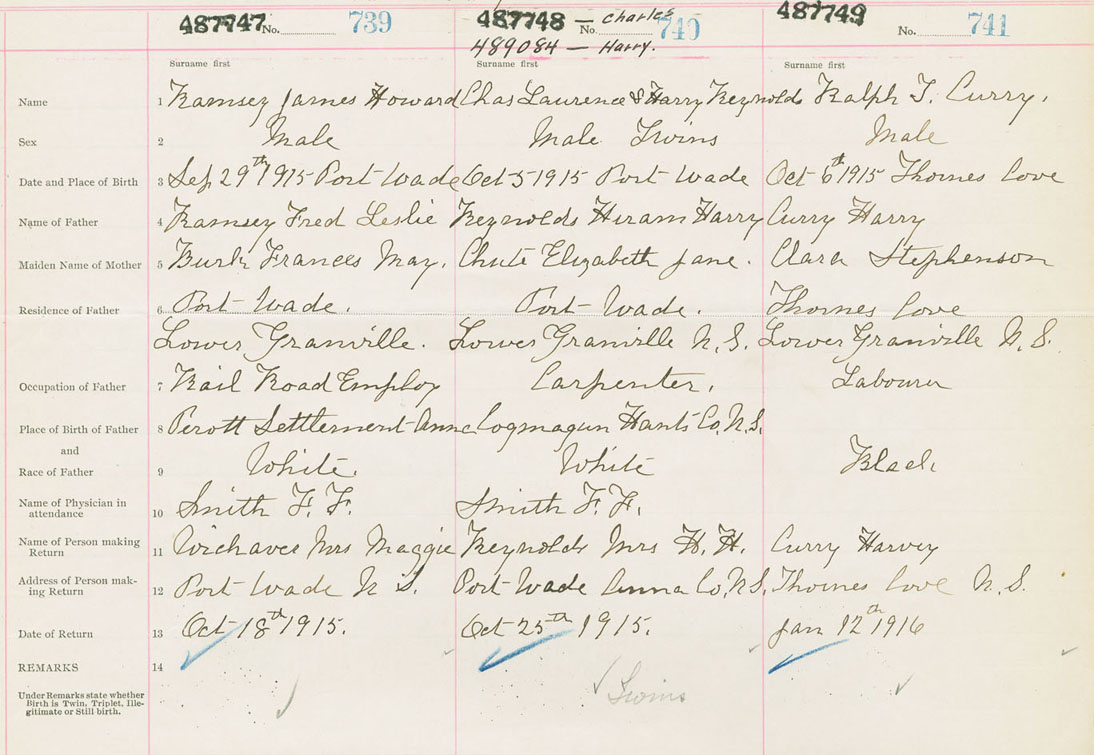 487747 No. 739 487748 — Charles No. 740 487749 No. 741
489084 — Harry.
Surname first Surname first Surname first
Name 1 Ramsey James Howard Chas Laurence & Harry Reynolds Ralph T. Curry.
Sex 2 Male Male Twins Male
Date and Place of Birth 3 Sep 29th 1915 Port Wade Oct 5 1915 Port Wade Oct 6th 1915 Thornes Cove
Name of Father 4 Ramsey Fred Leslie Reynolds Hiram Harry Curry Harry
Maiden Name of Mother 5 Frances May. Chute Elizabeth Jane. Clara Stephenson
Residence of Father 6 Port Wade. Port Wade. Thornes Cove
Lower Granville. Lower Granville N.S. Lower Granville N.S.
Occupation of Father 7 Rail Road Employ Carpenter. Labourer
Place of Birth of Father 8 Perott Settlement Anna Cogmagun Hants Co, N.S.
and
Race of Father 9 White. White Black
Name of Physician in
attendance 10 Smith F. F. Smith F. F.
Name of Person making
Return 11 Mrs Maggie Reynolds Mrs H. H. Curry Harvey
Address of Person mak-
ing Return 12 Port Wade N S. Port Wade Anna Co, N.S. Thornes Cove N.S.
Date of Return 13 Oct 18th 1915. Oct 25th 1915. Jan 12th 1916
REMARKS 14
Under Remarks state whether
Birth is Twin, Triplet, Ille-
gitimate or Still birth.
Twins